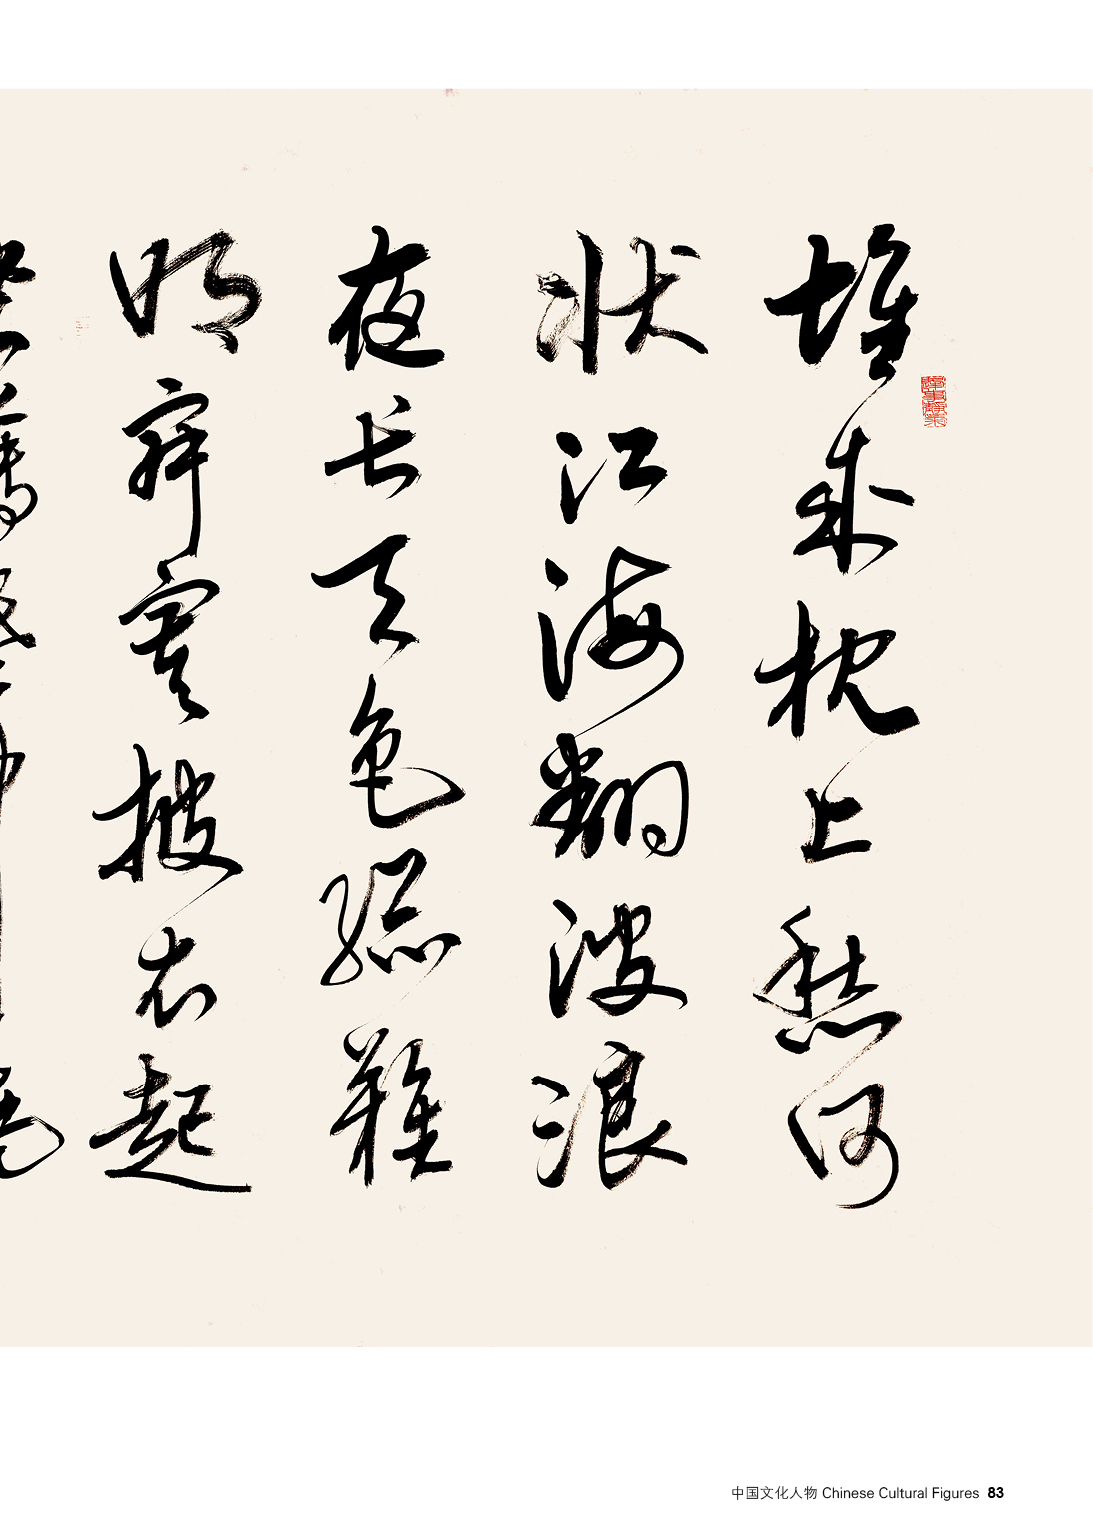 堆来枕上愁何
状江海翻波浪
夜长天色总难
明寂寞披衣起
中国文化人物 Chinese Cultural Figures 83